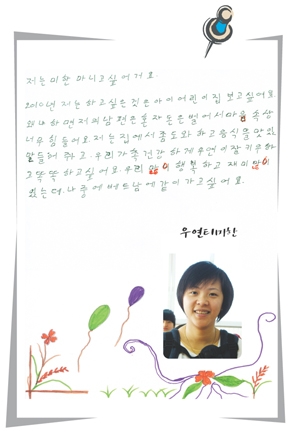 저는 미한 마니고 싶어거요.
2010년 저는 하고싶은 것은 아이 어린이집 보고싶어요
왜냐하면 저의 남편은 혼자 돈은 벌어서 마음 속상
너무 힘들어요. 저는 집에서 좀 도와 하고 음식을 맛있
만들어 주고. 우리 가족 건강하게 우연이 잘 키우하
고 똑똑하고 싶어요. 우리 많이 행복하고 재미 많이
있는데. 나중에 베트남에 같이 가고 싶어요.
우엔티미한